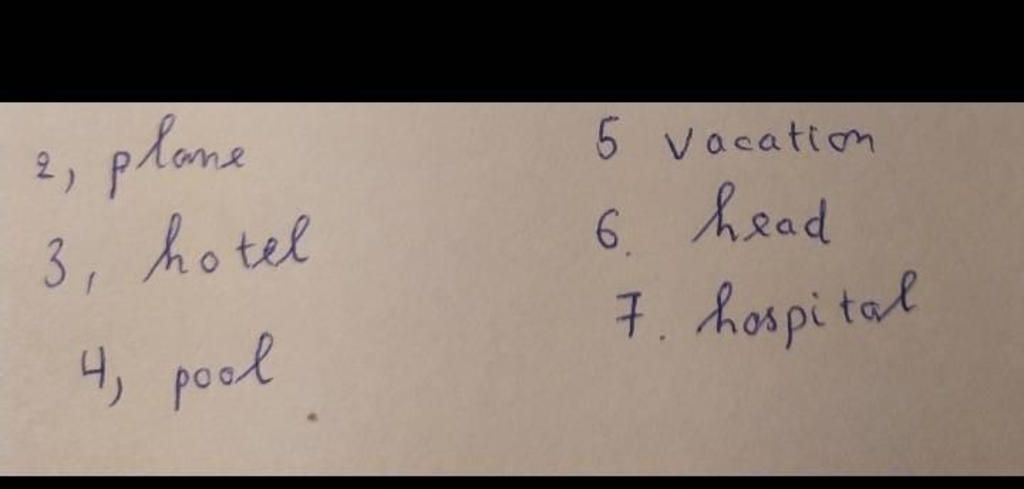 2, plane
3, hotel
4, pool
5 vacation
6. head
7. hospital